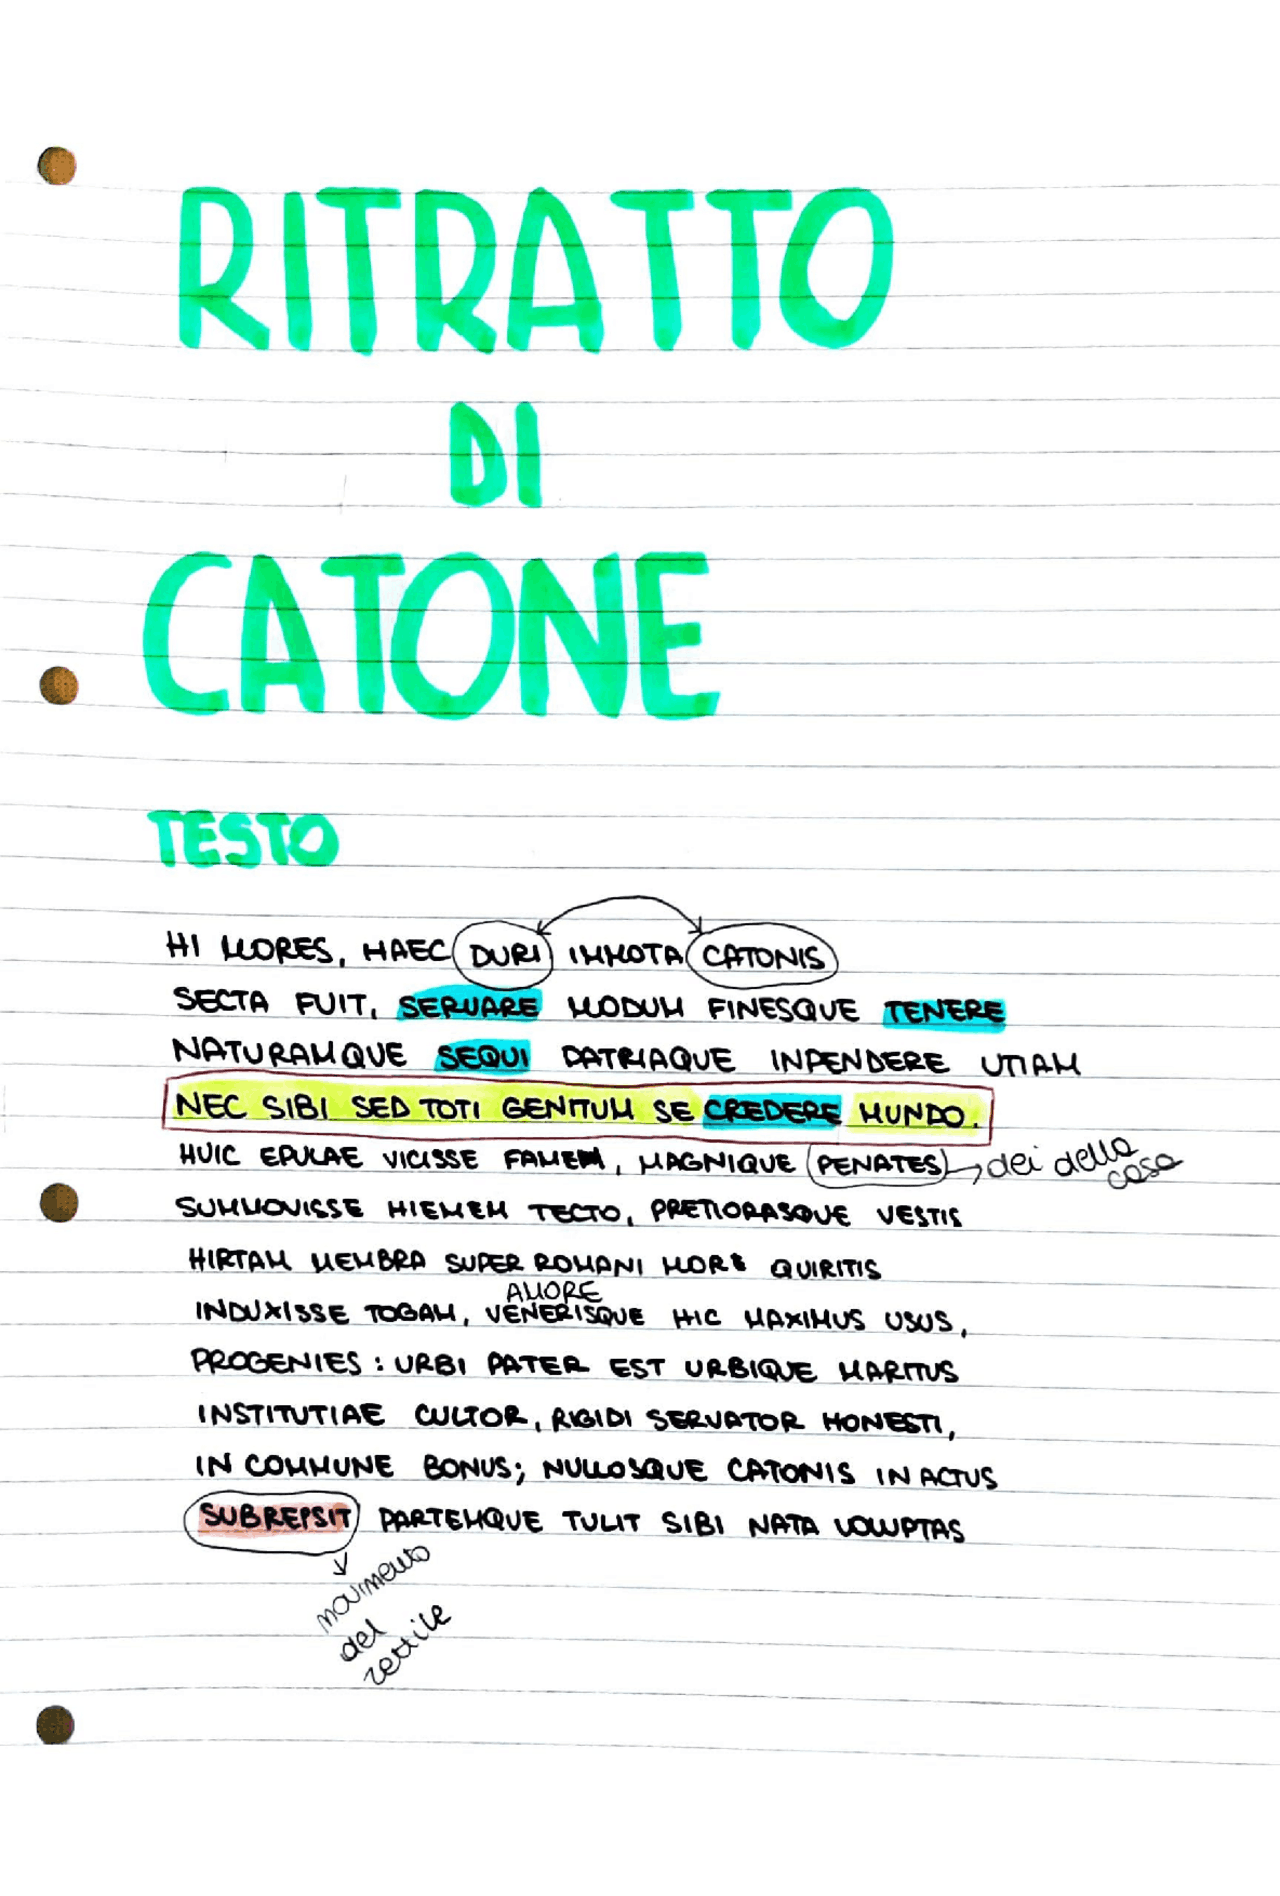 RITRATTO
DI
CATONE
TESTO
HI MORES, HAEC DURI IMMOTA CATONIS
SECTA FUIT, SERVARE MODUM FINESQUE TENERE
NATURAMQUE SEQUI PATRIAQUE INPENDERE VITAM
NEC SIBI SED TOTI GENITUM SE CREDERE MUNDO.
HUIC EPULAE VICISSE FAMEM, MAGNIQUE PENATES → dei della casa
SUMMOVISSE HIEMEM TECTO, PRETIORASQUE VESTIS
HIRTAM MEMBRA SUPER ROMANI MORE QUIRITIS
AMORE
INDUXISSE TOGAM, VENERISQUE HIC MAXIMUS USUS,
PROGENIES: URBI PATER EST URBIQUE MARITUS
INSTITUTIAE CULTOR, RIGIDI SERVATOR HONESTI,
IN COMMUNE BONUS; NULLOSQUE CATONIS IN ACTUS
SUBREPSIT PARTEMQUE TULIT SIBI NATA VOLUPTAS
movimento
del
rettile